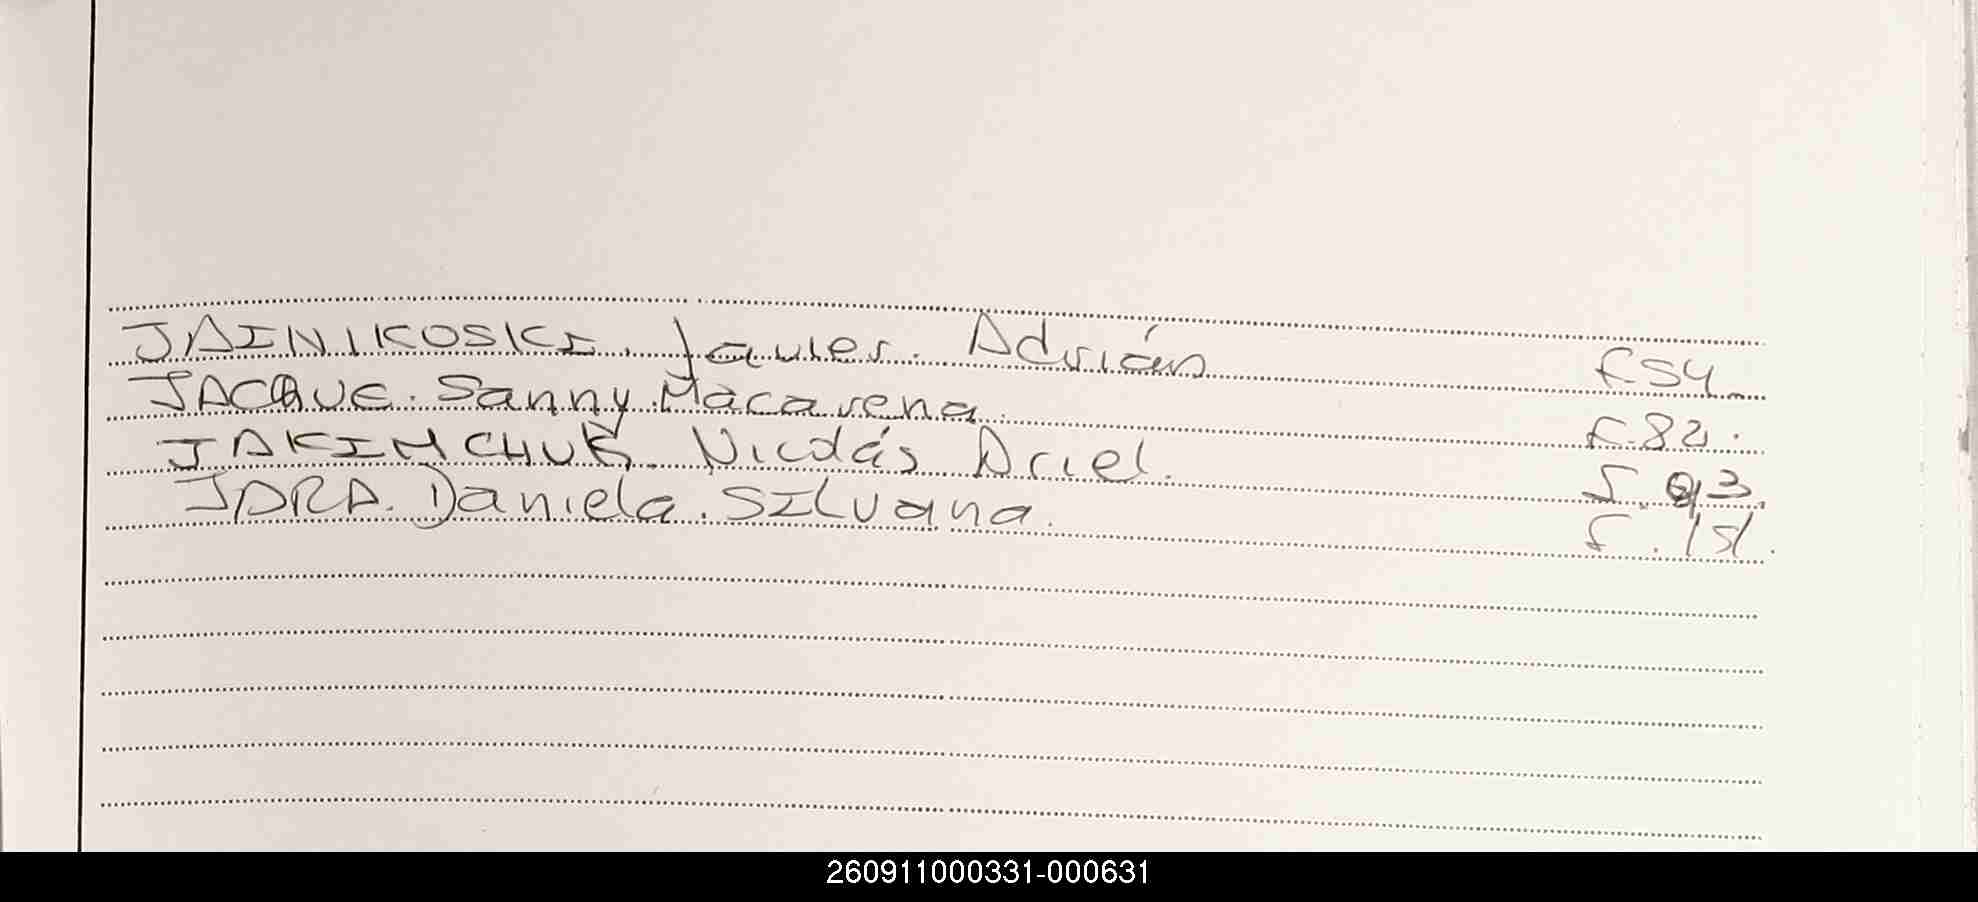 JAINIKOSKI. Javier. Adrián F54.
JACQUE. Sanny Macarena. F.82.
JAKIMCHUK. Nicolás Ariel. F. 93.
JARA. Daniela. Silvana. F. 151.
260911000331-000631